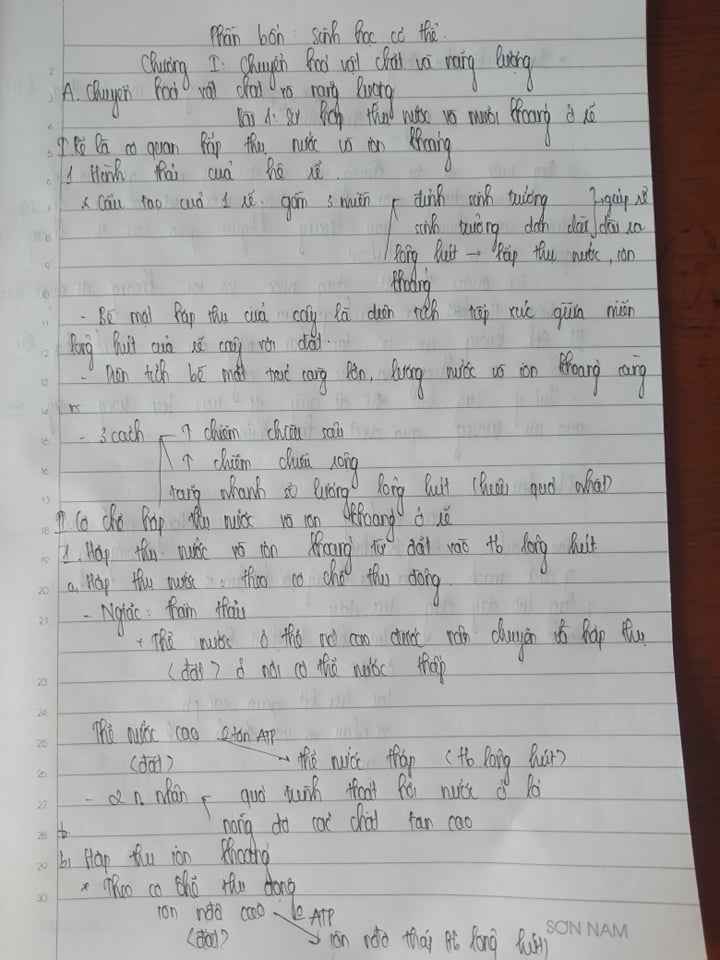 Phần bốn: sinh học cơ thể.
Chương I: Chuyển hoá vật chất và năng lượng
A. Chuyển hoá vật chất và năng lượng
Bài 1: Sự hấp thụ nước và muối khoáng ở rễ
I Rễ là cơ quan hấp thụ nước và ion khoáng
1 Hình thái của hệ rễ.
* Cấu tạo của 1 rễ. gồm 3 miền đỉnh sinh trưởng } giúp rễ
sinh trưởng dãn dài } dài ra
lông hút → hấp thu nước, ion
khoáng
- Bề mặt hấp thu của cây là diện tích tiếp xúc giữa miền
lông hút của rễ cây với đất.
- Diện tích bề mặt càng lớn, lượng nước và ion khoáng càng
- 3 cách ↑ chiềm chiều sâu
↑ chiềm chiều rộng
tăng nhanh số lượng lông hút (hiệu quả nhất)
II. Cơ chế hấp thu nước và ion khoáng ở rễ
1. Hấp thu nước và ion khoáng từ đất vào tb lông hút.
a. Hấp thu nước: theo cơ chế thụ động.
- Ngtắc: thẩm thấu
+ Thế nước ở thế nc cao được vận chuyển hấp thu
(đất) ở nơi có thế nước thấp
Thế nước cao ko tốn ATP
(đất) thế nước thấp (tb lông hút)
- 2 n nhân quá trình thoát hơi nước ở lá
nồng độ các chất tan cao
b.
b, Hấp thu ion khoáng
* Theo cơ chế thụ động
ion nđộ cao ko ATP
(đất) ion nđộ thấp (tb lông hút)
SƠN NAM